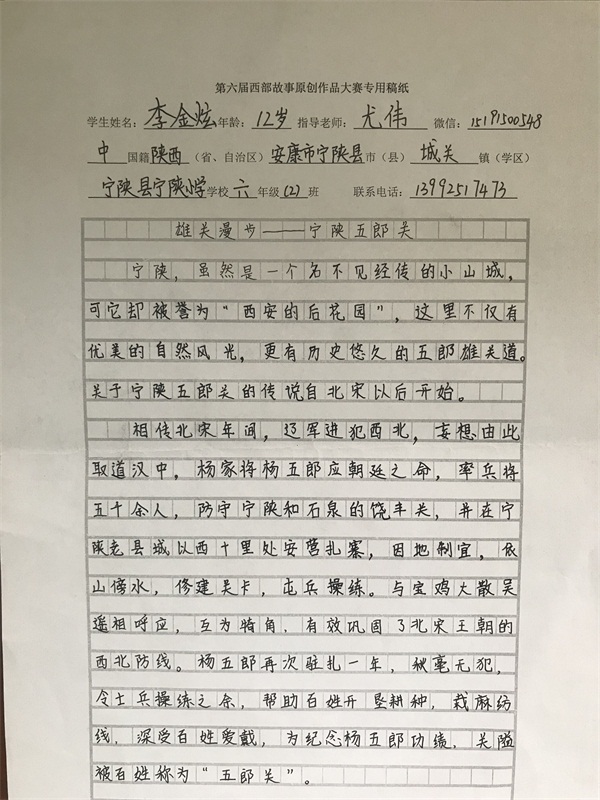 第六届西部故事原创作品大赛专用稿纸
学生姓名：李金炫 年龄：12岁 指导老师：尤伟 微信：15191500548
中国籍 陕西（省、自治区）安康市宁陕县市（县）城关镇（学区）
宁陕县宁陕小学学校 六年级（2）班 联系电话：13992517473
雄关漫步——宁陕五郎关
宁陕，虽然是一个名不见经传的小山城，
可它却被誉为“西安的后花园”，这里不仅有
优美的自然风光，更有历史悠久的五郎雄关道。
关于宁陕五郎关的传说自北宋以后开始。
相传北宋年间，辽军进犯西北，妄想由此
取道汉中，杨家将杨五郎应朝廷之命，率兵将
五十余人，防守宁陕和石泉的饶丰关，并在宁
陕老县城以西十里处安营扎寨，因地制宜，依
山傍水，修建关卡，屯兵操练。与宝鸡大散关
遥相呼应，互为犄角，有效巩固了北宋王朝的
西北防线。杨五郎再次驻扎一年，秋毫无犯，
令士兵操练之余，帮助百姓开垦耕种，栽麻纺
线，深受百姓爱戴，为纪念杨五郎功绩，关隘
被百姓称为“五郎关”。